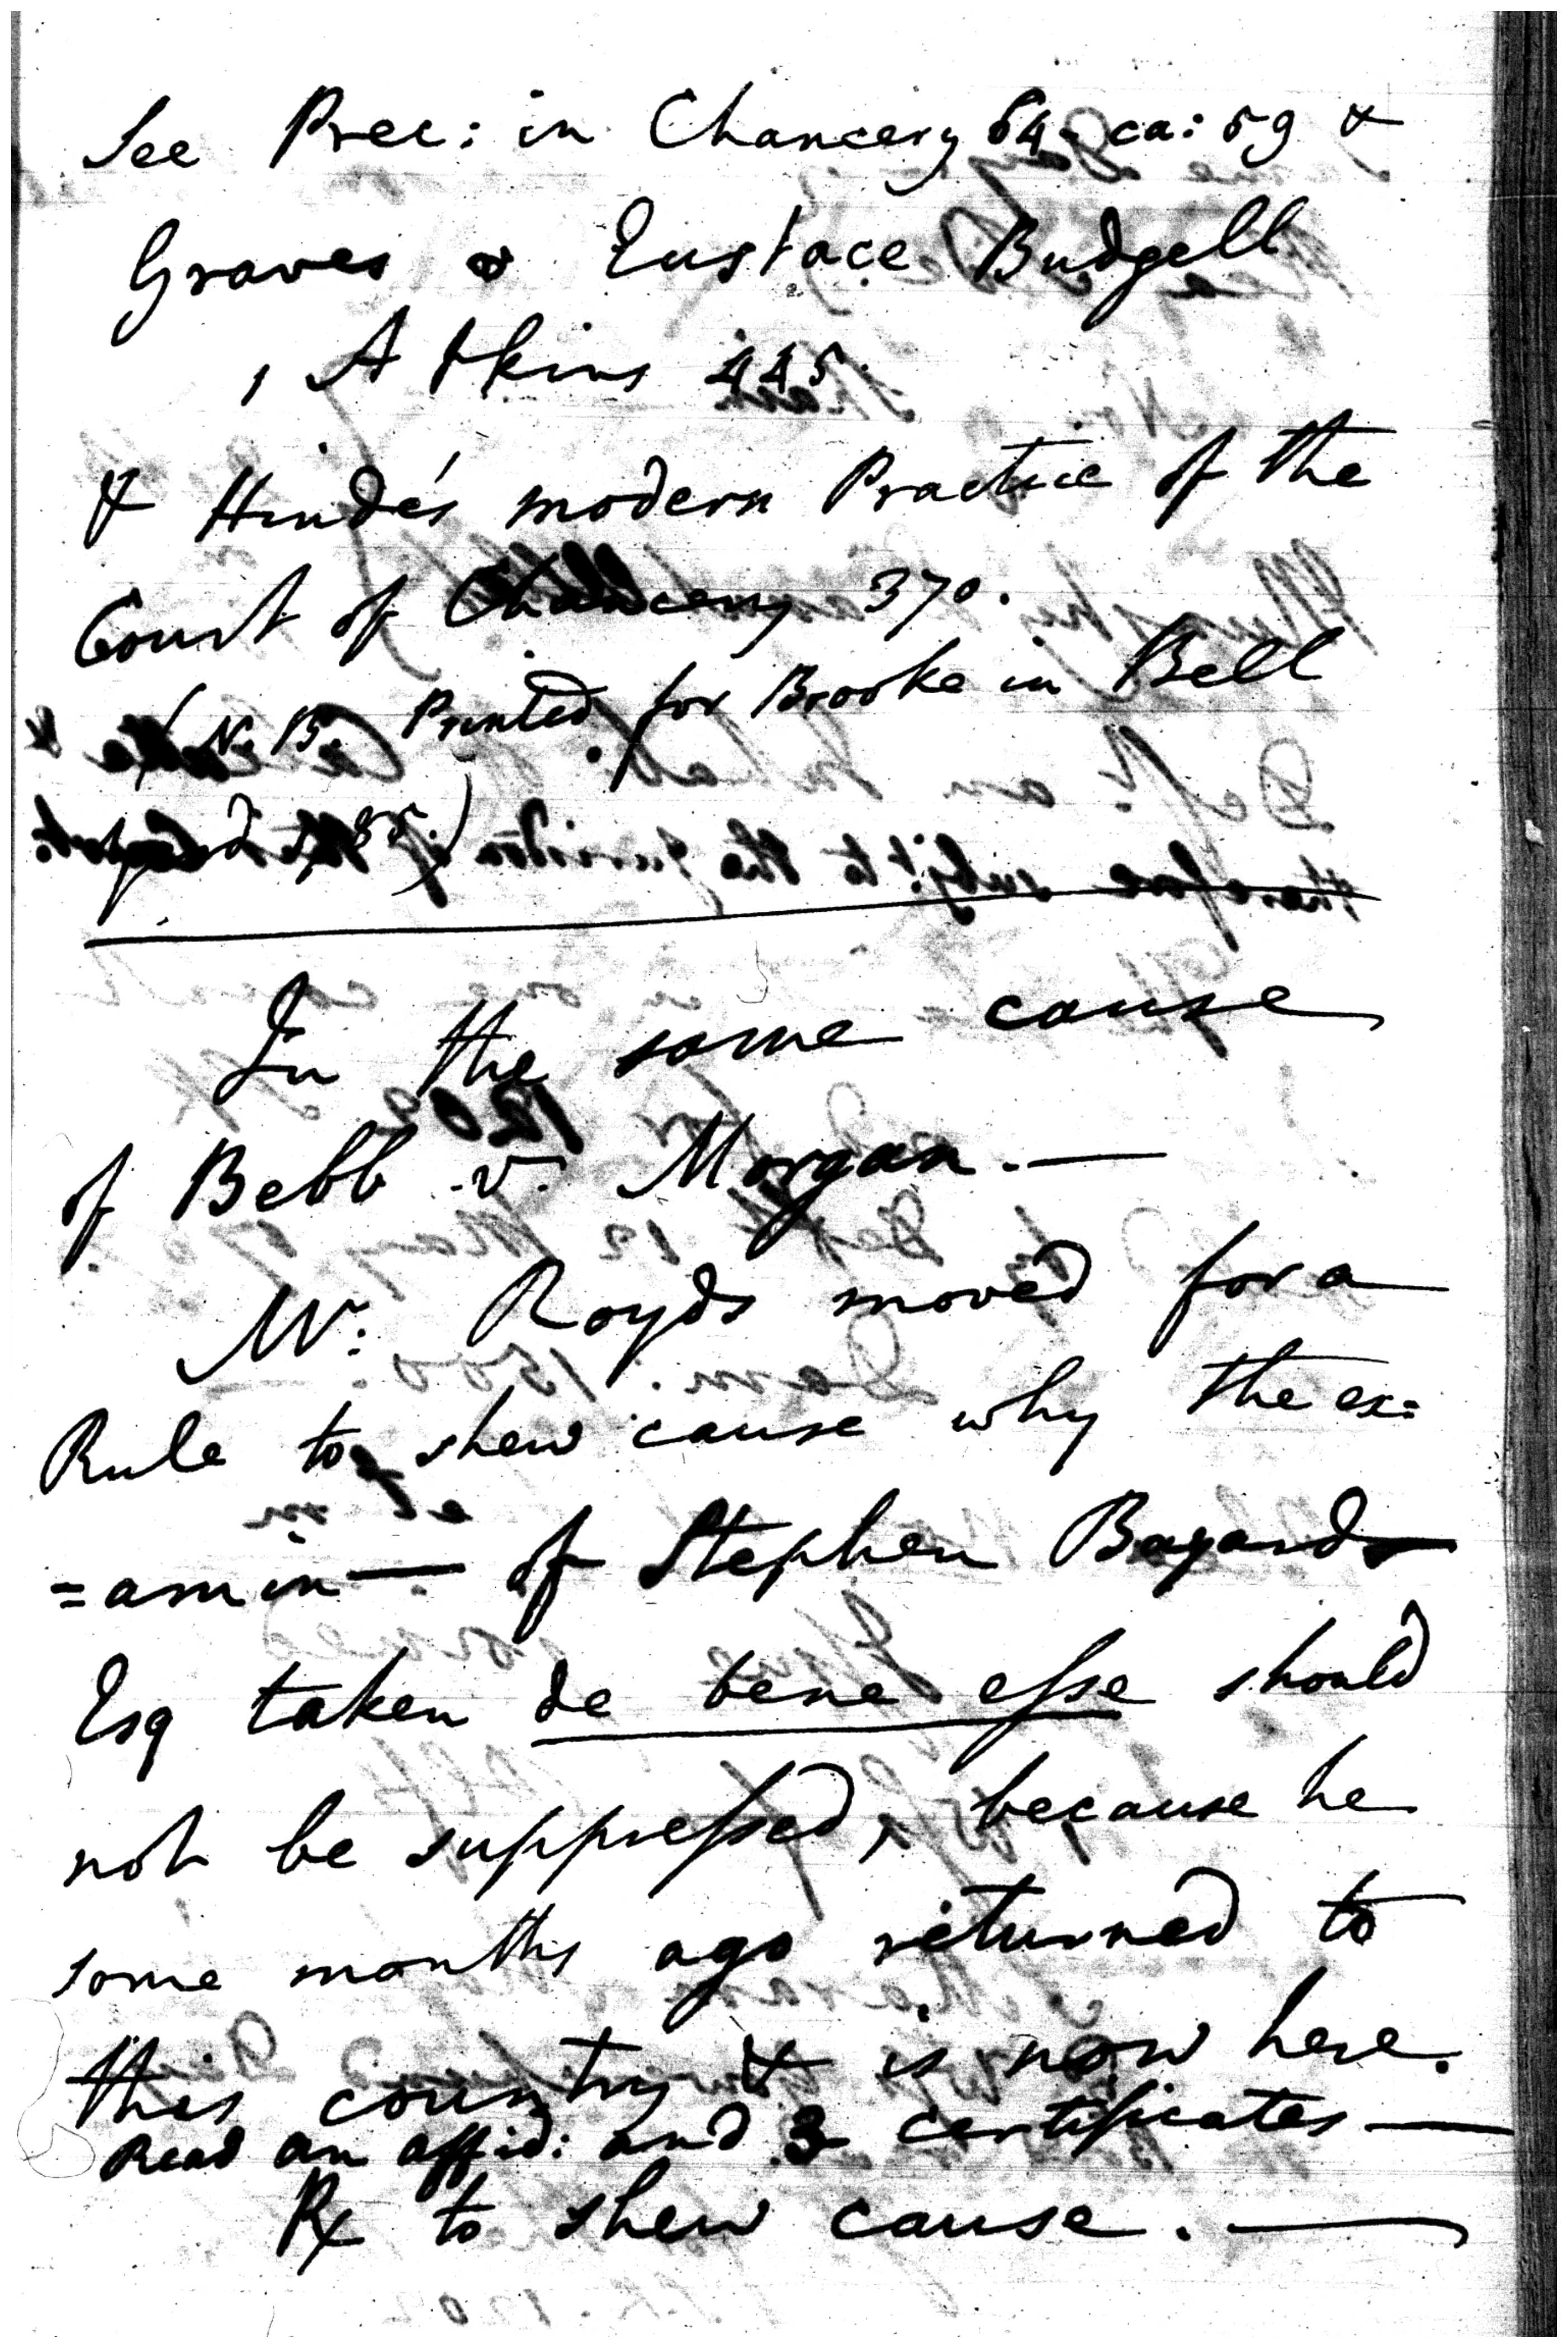 See Prec: in Chancery 64 - ca: 59 &
Graves v Eustace Budgell
1 Atkins 445.
& Hinde's modern Practice of the
Court of Chancery 370.
(N. B. Printed for Brooke in Bell
yard 1785.)
In the same cause
of Bebb .v. Morgan. —
Mr: Royds moved for a
Rule to shew cause why the ex=
=amin— of Stephen Bayard
Esq taken de bene esse should
not be suppressed, because he
some months ago returned to
this country & is now here.
Read an affid: and 3 certificates —
Rx to shew cause. —